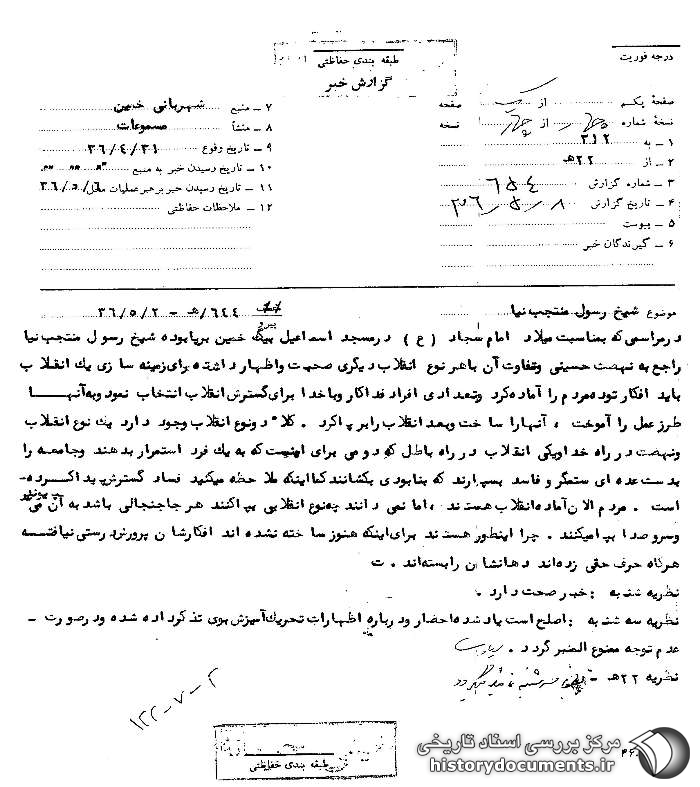 درجه فوریت
طبقه بندی حفاظتی
گزارش خبر
صفحه یکم از صفحه
نسخه شماره چهار از چهار نسخه
۱ - به ۳۱۲
۲ - از ۲۲هـ
۳ - شماره گزارش ۶۵۴
۴ - تاریخ گزارش ۳۶/۵/۸
۵ - پیوست
۶ - گیرندگان خبر
۷ - منبع شهربانی خمین
۸ - منشأ مسموعات
۹ - تاریخ وقوع ۳۶/۴/۳۱
۱۰ - تاریخ رسیدن خبر به منبع
۱۱ - تاریخ رسیدن خبر برهبر عملیات ۳۶/۵/۶
۱۲ - ملاحظات حفاظتی
موضوع شیخ رسول منتجب نیا ۶۴۴/هـ - ۳۶/۵/۲
در مراسمی که بمناسبت میلاد امام سجاد (ع) در مسجد اسماعیل بیگ خمین برپا بوده شیخ رسول منتجب نیا
راجع به نهضت حسینی و تفاوت آن با هر نوع انقلاب دیگری صحبت و اظهار داشته برای زمینه سازی یک انقلاب
باید افکار توده مردم را آماده کرد و تعدادی افراد فداکار و باخدا برای گسترش انقلاب انتخاب نمود و به آنها
طرز عمل را آموخت ، آنها را ساخت و بعد انقلاب را برپا کرد . کلا دو نوع انقلاب وجود دارد یک نوع انقلاب
و نهضت در راه خدا و یکی انقلاب در راه باطل که دومی برای اینست که به یک فرد استمرار بدهند و جامعه را
بدست عده ای ستمگر و فاسد بسپارند که بنابودی بکشانند کما اینکه ملاحظه میکنید فساد گسترش پیدا کرده
است . مردم الان آماده انقلاب هستند ، اما نمی دانند چه نوع انقلابی بپا کنند هر جا جنجالی باشد به آن می پیوندند
و سر و صدا بپا میکنند . چرا اینطور هستند برای اینکه هنوز ساخته نشده اند افکارشان پرورش درستی نیافته
هرگاه حرف حقی زده اند دهانشان را بسته اند . ت
نظریه شنبه : خبر صحت دارد .
نظریه سه شنبه : اصلح است یاد شده احضار و درباره اظهارات تحریک آمیزش بوی تذکر داده شده و در صورت -
عدم توجه ممنوع المنبر گردد .
نظریه ۲۲هـ -
۱۲۲-۷-۲
طبقه بندی حفاظتی
مرکز بررسی اسناد تاریخی
historydocuments.ir